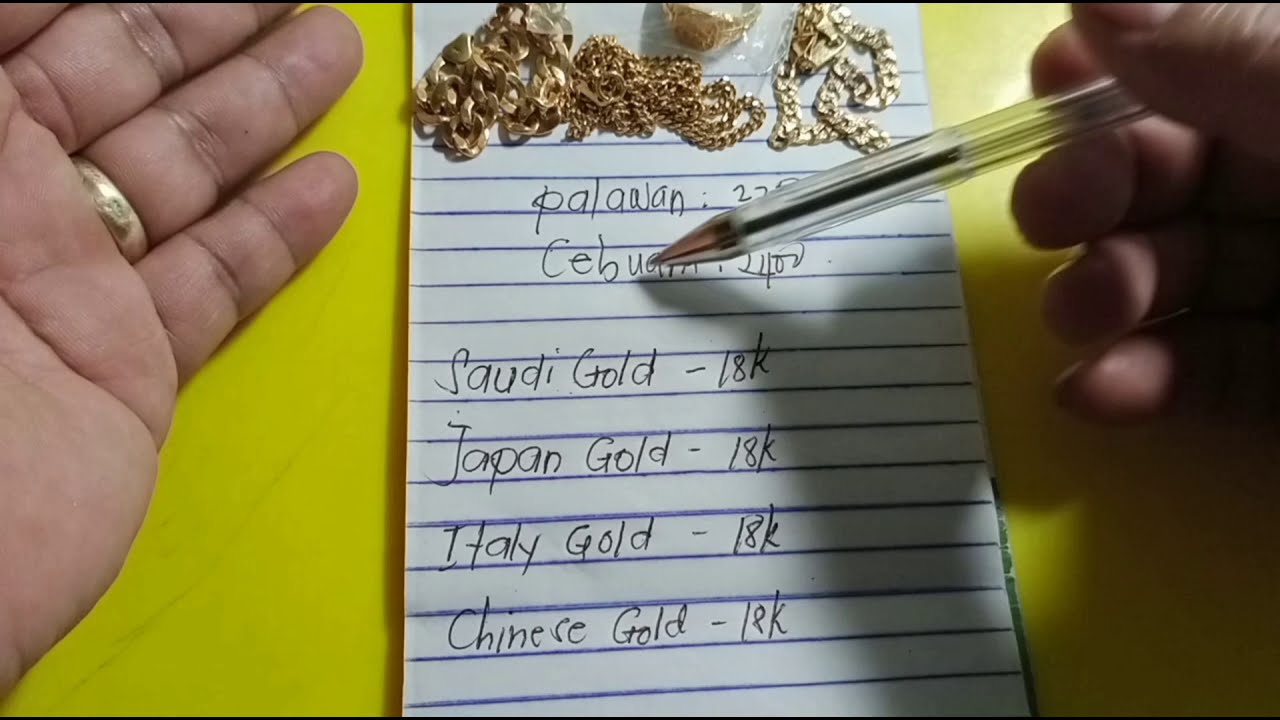 Palawan :
: 2400
Saudi Gold - 18k
Japan Gold - 18k
Italy Gold - 18k
Chinese Gold - 18k